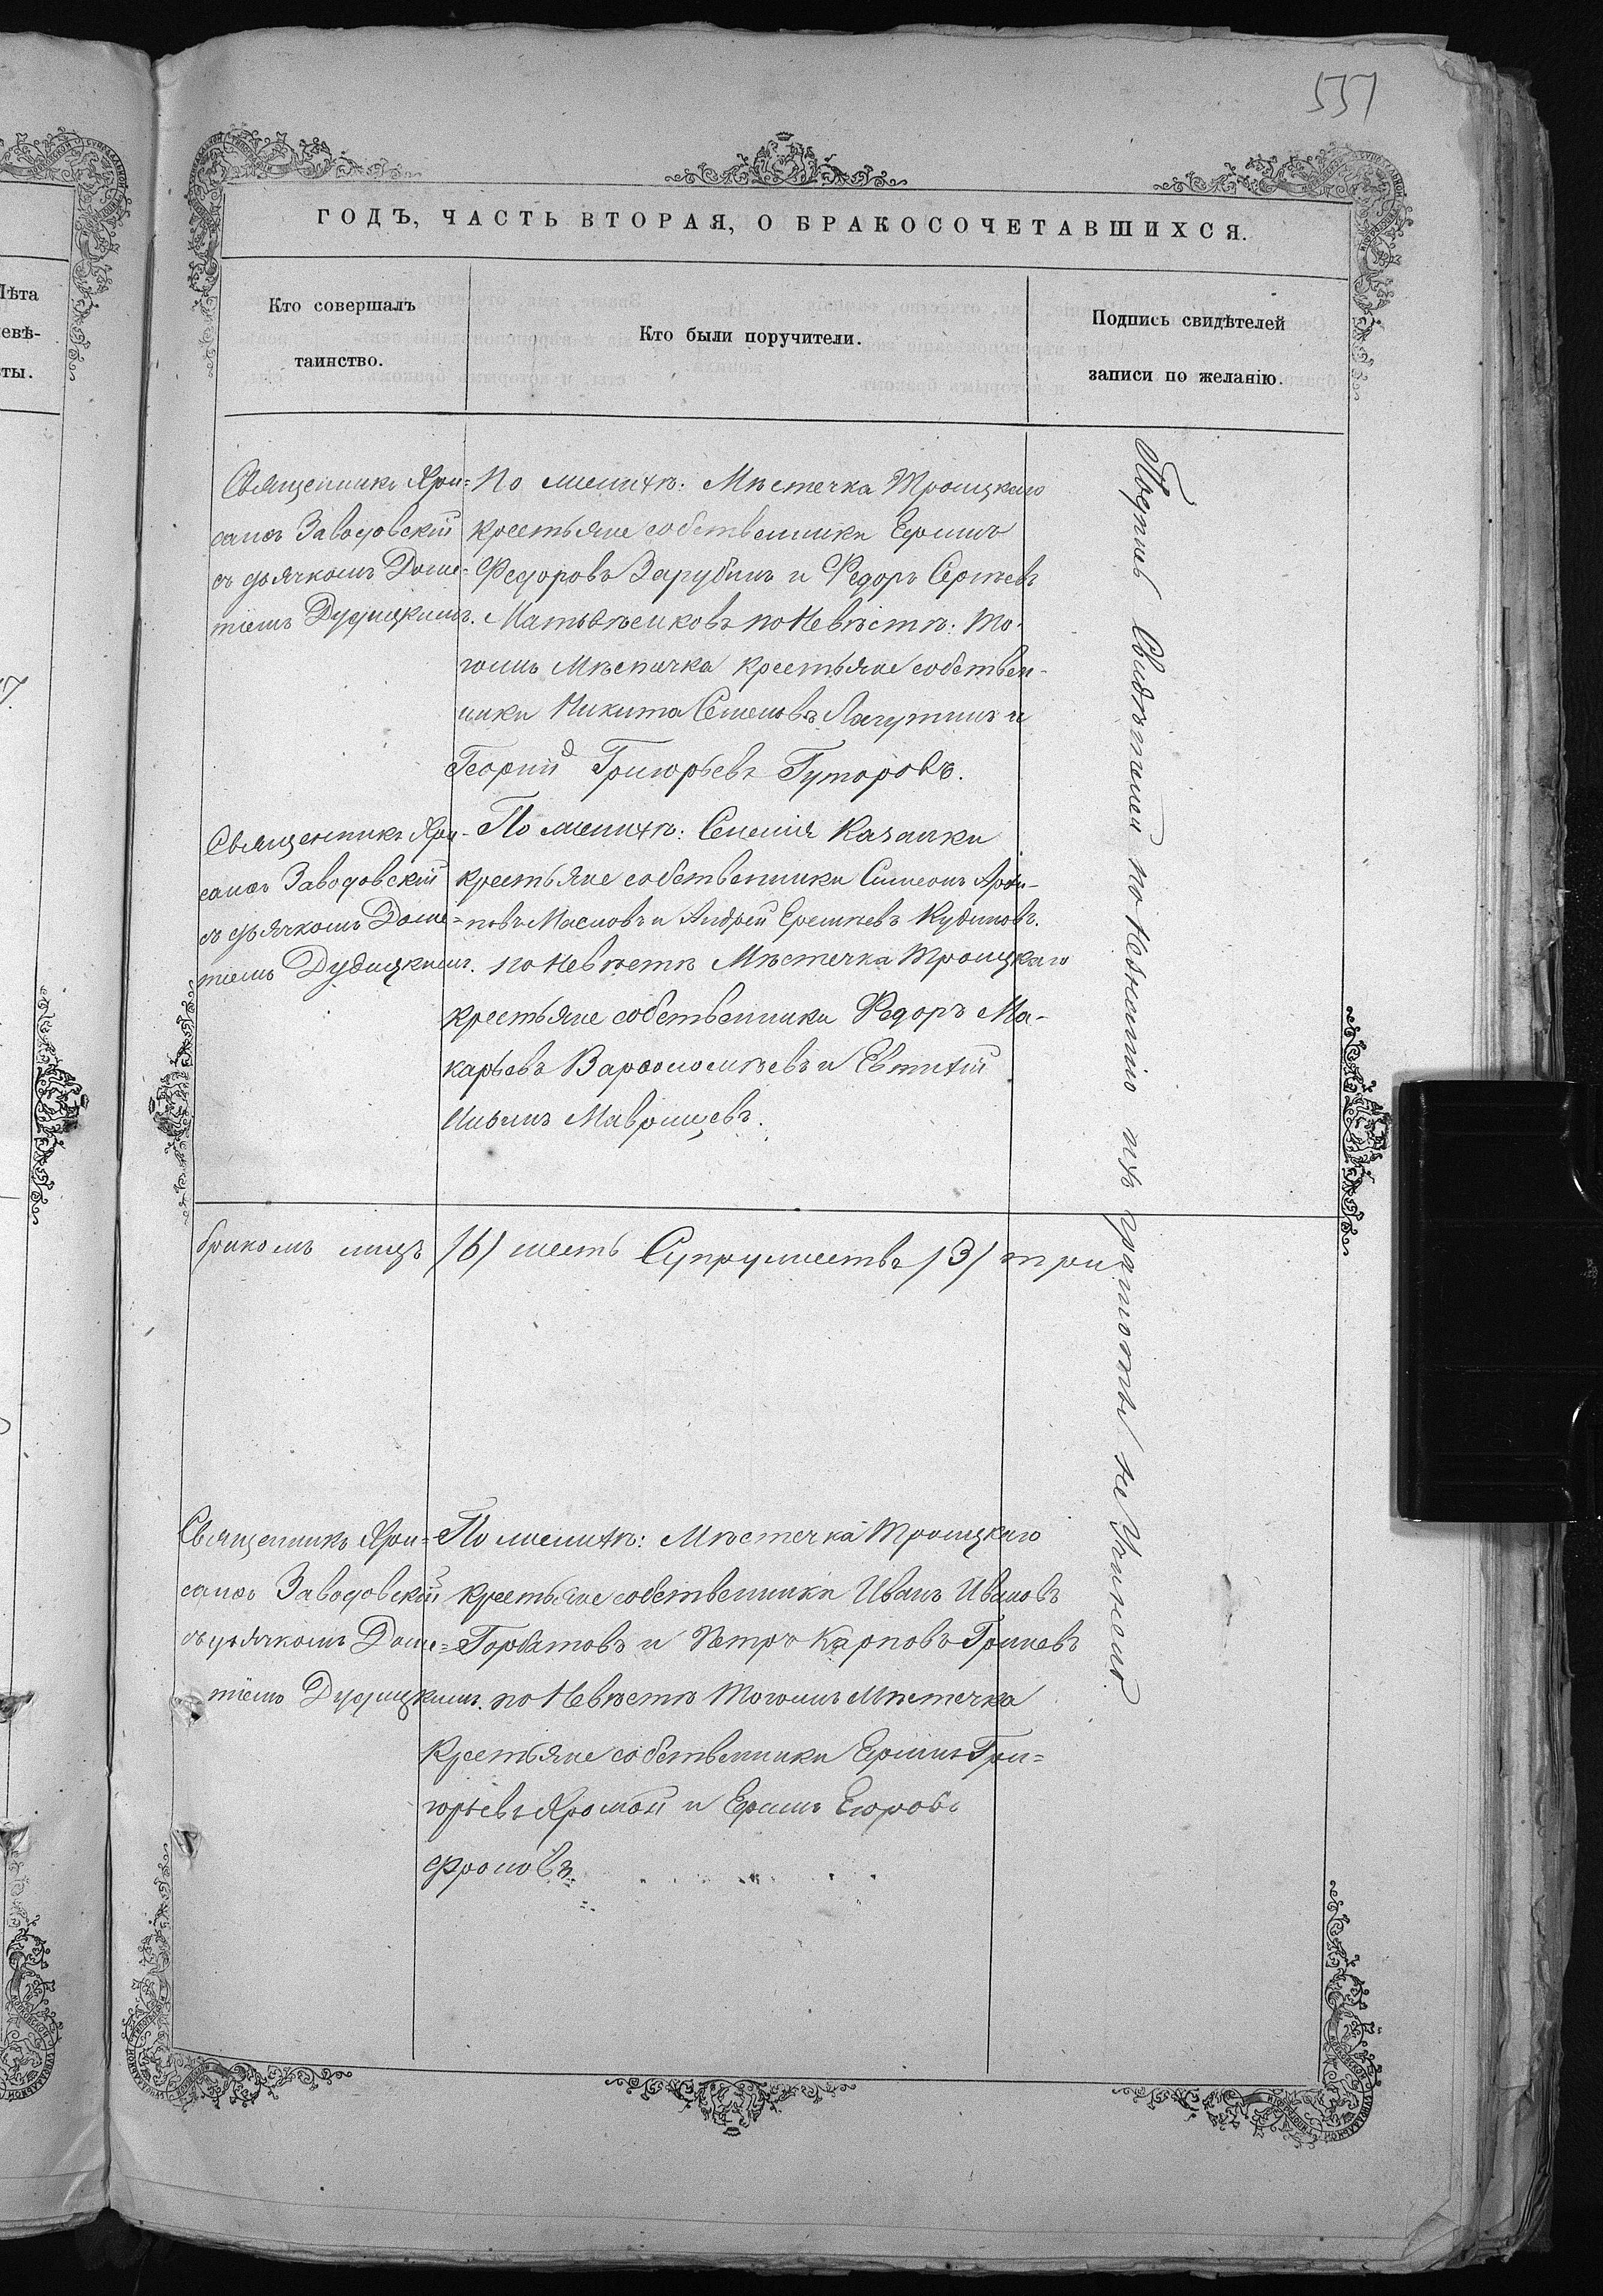 537
ГОДЪ, ЧАСТЬ ВТОРАЯ, О БРАКОСОЧЕТАВШИХСЯ.
Лѣта
невѣ-
сты.
Кто совершалъ
таинство.
Кто были поручители.
Подпись свидѣтелей
записи по желанію.
Священникъ Хри-
самъ Заводовскій
съ дьячкомъ Доме-
тіемъ Дудицкимъ.
По женихѣ: Мѣстечка Троицкаго
крестьяне собственники Ермилъ
Федоровъ Зарубинъ и Федоръ Сергѣевъ
Матвѣенковъ по Невѣстѣ: То-
гожъ Мѣстечка крестьяне собствен-
ники Никита Семеновъ Лагутинъ и
Георгій Григорьевъ Гуторовъ.
Священникъ Хри-
самъ Заводовскій
съ дьячкомъ Доме-
тіемъ Дудицкимъ.
По женихѣ: Селенія Казанки
крестьяне собственники Симеонъ
Масловъ и Андрей Еремѣевъ Кудиновъ.
по Невѣстѣ Мѣстечка Троицкаго
крестьяне собственники Федоръ Ма-
карьевъ Варфоломѣевъ и Евтихій
Ильинъ Маврищевъ.
бракомъ лицъ /6/ шесть Супружествъ /3/ три
Священникъ Хри-
самъ Заводовскій
съ дьячкомъ Доме-
тіемъ Дудицкимъ.
По женихѣ: Мѣстечка Троицкаго
крестьяне собственники Иванъ Ивановъ
Горбатовъ и Петръ Карповъ Гриневъ
по Невѣстѣ Тогожъ Мѣстечка
Крестьяне собственники Ермилъ Гри-
горьевъ Хромой и Егоровъ
Фроловъ
Свидѣтелей по Незнанію грамоты не